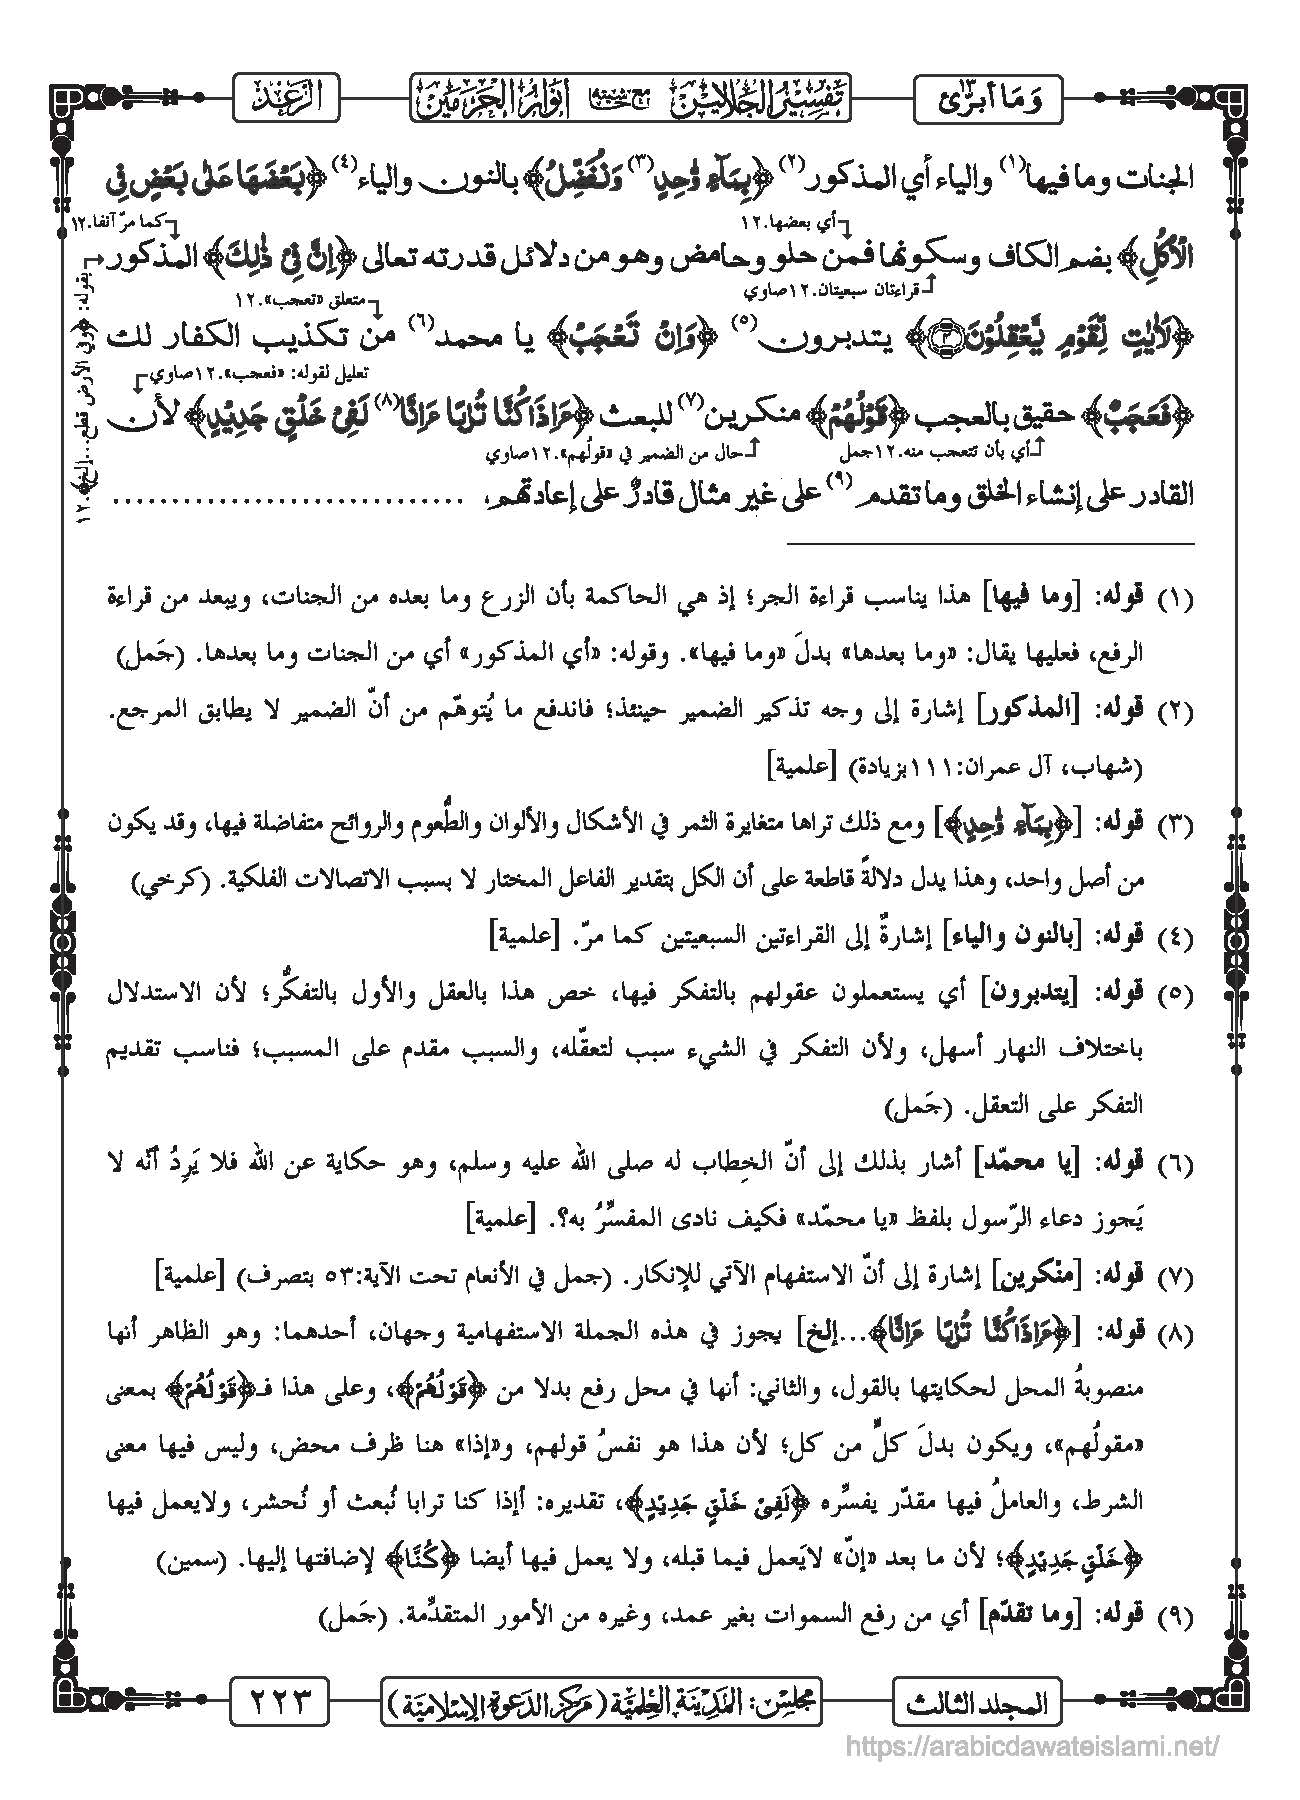 وَمَا أبرّئ ١٣
تفسير الجلالين مع حاشية أنوار الحرمين
الرعد
الجنات وما فيها(١) والياء أي المذكور(٢) ﴿بِمَآءٍ وّٰحِدٍ(٣) وَنُفَضِّلُ﴾ بالنون والياء(٤) ﴿بَعْضَهَا عَلٰى بَعْضٍ فِى
أي بعضها.١٢
كما مرّ آنفا.١٢
الْاُكُلِ﴾ بضم الكاف وسكونها فمن حلو وحامض وهو من دلائل قدرته تعالى ﴿اِنَّ فِیْ ذٰلِكَ﴾ المذكور
بقوله: ﴿وفي الأرض قطع...إلخ﴾.١٢
قراءتان سبعيتان.١٢صاوي
متعلق «تعجب».١٢
لَاٰیٰتٍ لِّقَوْمٍ یَّعْقِلُوْنَ ﴿٤﴾﴾ يتدبرون(٥) ﴿وَاِنْ تَعْجَبْ﴾ يا محمد(٦) من تكذيب الكفار لك
تعليل لقوله: «فعجب».١٢صاوي
﴿فَعَجَبٌ﴾ حقيق بالعجب ﴿قَوْلُهُمْ﴾ منكرين(٧) للبعث ﴿ءَاِذَا كُنَّا تُرٰبًا ءَاِنَّا(٨) لَفِیْ خَلْقٍ جَدِیْدٍ﴾ لأن
أي بأن تتعجب منه.١٢جمل
حال من الضمير في «قولُهم».١٢صاوي
القادر على إنشاء الخلق وما تقدم(٩) على غير مثال قادرٌ على إعادتهم، ..............................
(١) قوله: [وما فيها] هذا يناسب قراءة الجر؛ إذ هي الحاكمة بأن الزرع وما بعده من الجنات، ويبعد من قراءة
الرفع، فعليها يقال: «وما بعدها» بدلَ «وما فيها». وقوله: «أي المذكور» أي من الجنات وما بعدها. (جَمل)
(٢) قوله: [المذكور] إشارة إلى وجه تذكير الضمير حينئذ؛ فاندفع ما يُتوهّم من أنّ الضمير لا يطابق المرجع.
(شهاب، آل عمران:١١١بزيادة) [علمية]
(٣) قوله: [﴿بِمَآءٍ وّٰحِدٍ﴾] ومع ذلك تراها متغايرة الثمر في الأشكال والألوان والطُّعوم والروائح متفاضلة فيها، وقد يكون
من أصل واحد، وهذا يدل دلالةً قاطعة على أن الكل بتقدير الفاعل المختار لا بسبب الاتصالات الفلكية. (كرخي)
(٤) قوله: [بالنون والياء] إشارةٌ إلى القراءتين السبعيتين كما مرّ. [علمية]
(٥) قوله: [يتدبرون] أي يستعملون عقولهم بالتفكر فيها، خص هذا بالعقل والأول بالتفكُّر؛ لأن الاستدلال
باختلاف النهار أسهل، ولأن التفكر في الشيء سبب لتعقّله، والسبب مقدم على المسبب؛ فناسب تقديم
التفكر على التعقل. (جَمل)
(٦) قوله: [يا محمّد] أشار بذلك إلى أنّ الخِطاب له صلى الله عليه وسلم، وهو حكاية عن الله فلا يَرِدُ أنّه لا
يَجوز دعاء الرّسول بلفظ «يا محمّد» فكيف نادى المفسِّرُ به؟. [علمية]
(٧) قوله: [منْكرين] إشارة إلى أنّ الاستفهام الآتي للإنكار. (جمل في الأنعام تحت الآية:٥٣ بتصرف) [علمية]
(٨) قوله: [﴿ءَاِذَا كُنَّا تُرٰبًا ءَاِنَّا﴾...إلخ] يجوز في هذه الجملة الاستفهامية وجهان، أحدهما: وهو الظاهر أنها
منصوبةُ المحل لحكايتها بالقول، والثاني: أنها في محل رفع بدلا من ﴿قَوْلُهُمْ﴾، وعلى هذا فـ﴿قَوْلُهُمْ﴾ بمعنى
«مقولُهم»، ويكون بدلَ كلٍّ من كل؛ لأن هذا هو نفسُ قولهم، و«إذا» هنا ظرف محض، وليس فيها معنى
الشرط، والعاملُ فيها مقدّر يفسِّره ﴿لَفِیْ خَلْقٍ جَدِیْدٍ﴾، تقديره: أإذا كنا ترابا نُبعث أو نُحشر، ولايعمل فيها
﴿خَلْقٍ جَدِیْدٍ﴾؛ لأن ما بعد «إنّ» لايَعمل فيما قبله، ولا يعمل فيها أيضا ﴿كُنَّا﴾ لإضافتها إليها. (سمين)
(٩) قوله: [وما تقدّم] أي من رفع السموات بغير عمد، وغيره من الأمور المتقدِّمة. (جَمل)
المجلد الثالث
مجلس: المدينة العلمية (مركز الدعوة الإسلامية)
٢٢٣
https://arabicdawateislami.net/